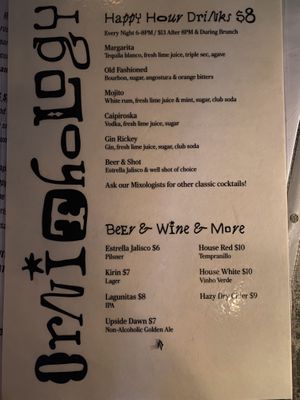 Ornithology
Happy Hour Drinks $8
Every Night 6-8PM / $13 After 8PM & During Brunch
Margarita
Tequila blanco, fresh lime juice, triple sec, agave
Old Fashioned
Bourbon, sugar, angostura & orange bitters
Mojito
White rum, fresh lime juice & mint, sugar, club soda
Caipiroska
Vodka, fresh lime juice, sugar
Gin Rickey
Gin, fresh lime juice, sugar, club soda
Beer & Shot
Estrella Jalisco & well shot of choice
Ask our Mixologists for other classic cocktails!
Beer & Wine & More
Estrella Jalisco $6
Pilsner
Kirin $7
Lager
Lagunitas $8
IPA
Upside Dawn $7
Non-Alcoholic Golden Ale
House Red $10
Tempranillo
House White $10
Vinho Verde
Hazy Dry Cider $9